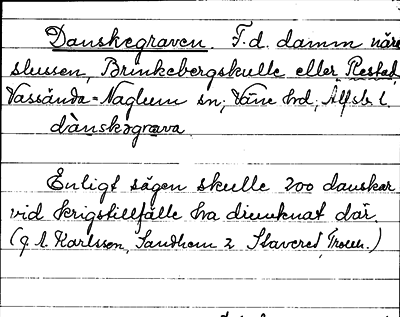 Danskegraven. F.d. damm näre
slussen, Brinkebergskulle eller Restad,
Vassända-Naglum sn; Väne hd; Älfsb. l.
dànskəgrava
Enligt sägen skulle 200 danskar
vid krigstillfälle ha drunknat där.
Karlsson, Sandhem 2 Stavered, Trollh.)